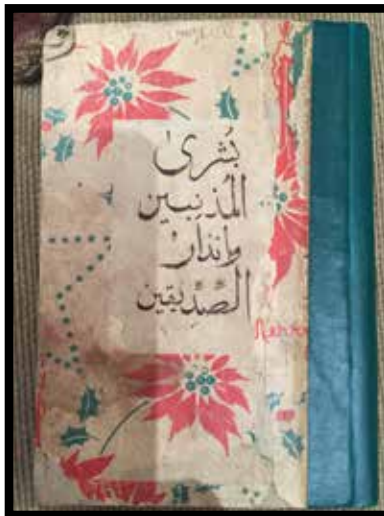 بُشرىٰ
المُذنِبين
وانذار
الصِّدِّيقين